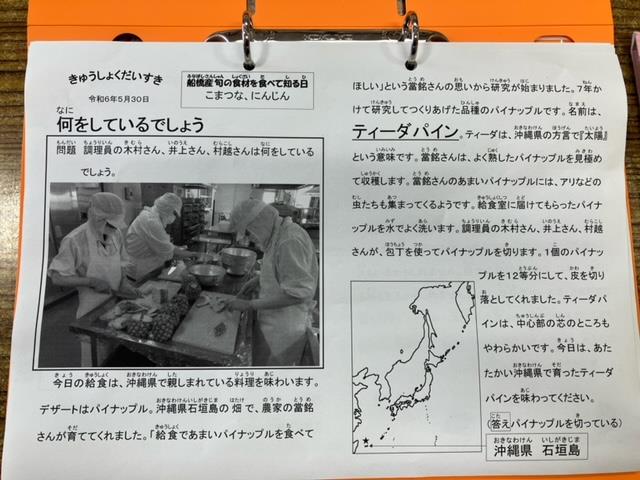 きゅうしょくだいすき
令和6年5月30日
船橋産旬の食材を食べて知る日
こまつな、にんじん
何をしているでしょう
問題 調理員の木村さん、井上さん、村越さんは何をしている
でしょう。
今日の給食は、沖縄県で親しまれている料理を味わいます。
デザートはパイナップル。沖縄県石垣島の畑で、農家の當銘
さんが育ててくれました。「給食であまいパイナップルを食べて
ほしい」という當銘さんの思いから研究が始まりました。7年か
けて研究してつくりあげた品種のパイナップルです。名前は、
ティーダパイン。ティーダは、沖縄県の方言で『太陽』
という意味です。當銘さんは、よく熟したパイナップルを見極め
て収穫します。當銘さんのあまいパイナップルには、アリなどの
虫たちも集まってくるようです。給食室に届けてもらったパイナ
ップルを水でよく洗います。調理員の木村さん、井上さん、村越
さんが、包丁を使ってパイナップルを切ります。1個のパイナッ
プルを12等分にして、皮を切り
落としてくれました。ティーダパ
インは、中心部の芯のところも
やわらかいです。今日は、あた
たかい沖縄県で育ったティーダ
パインを味わってください。
(答えパイナップルを切っている)
沖縄県 石垣島